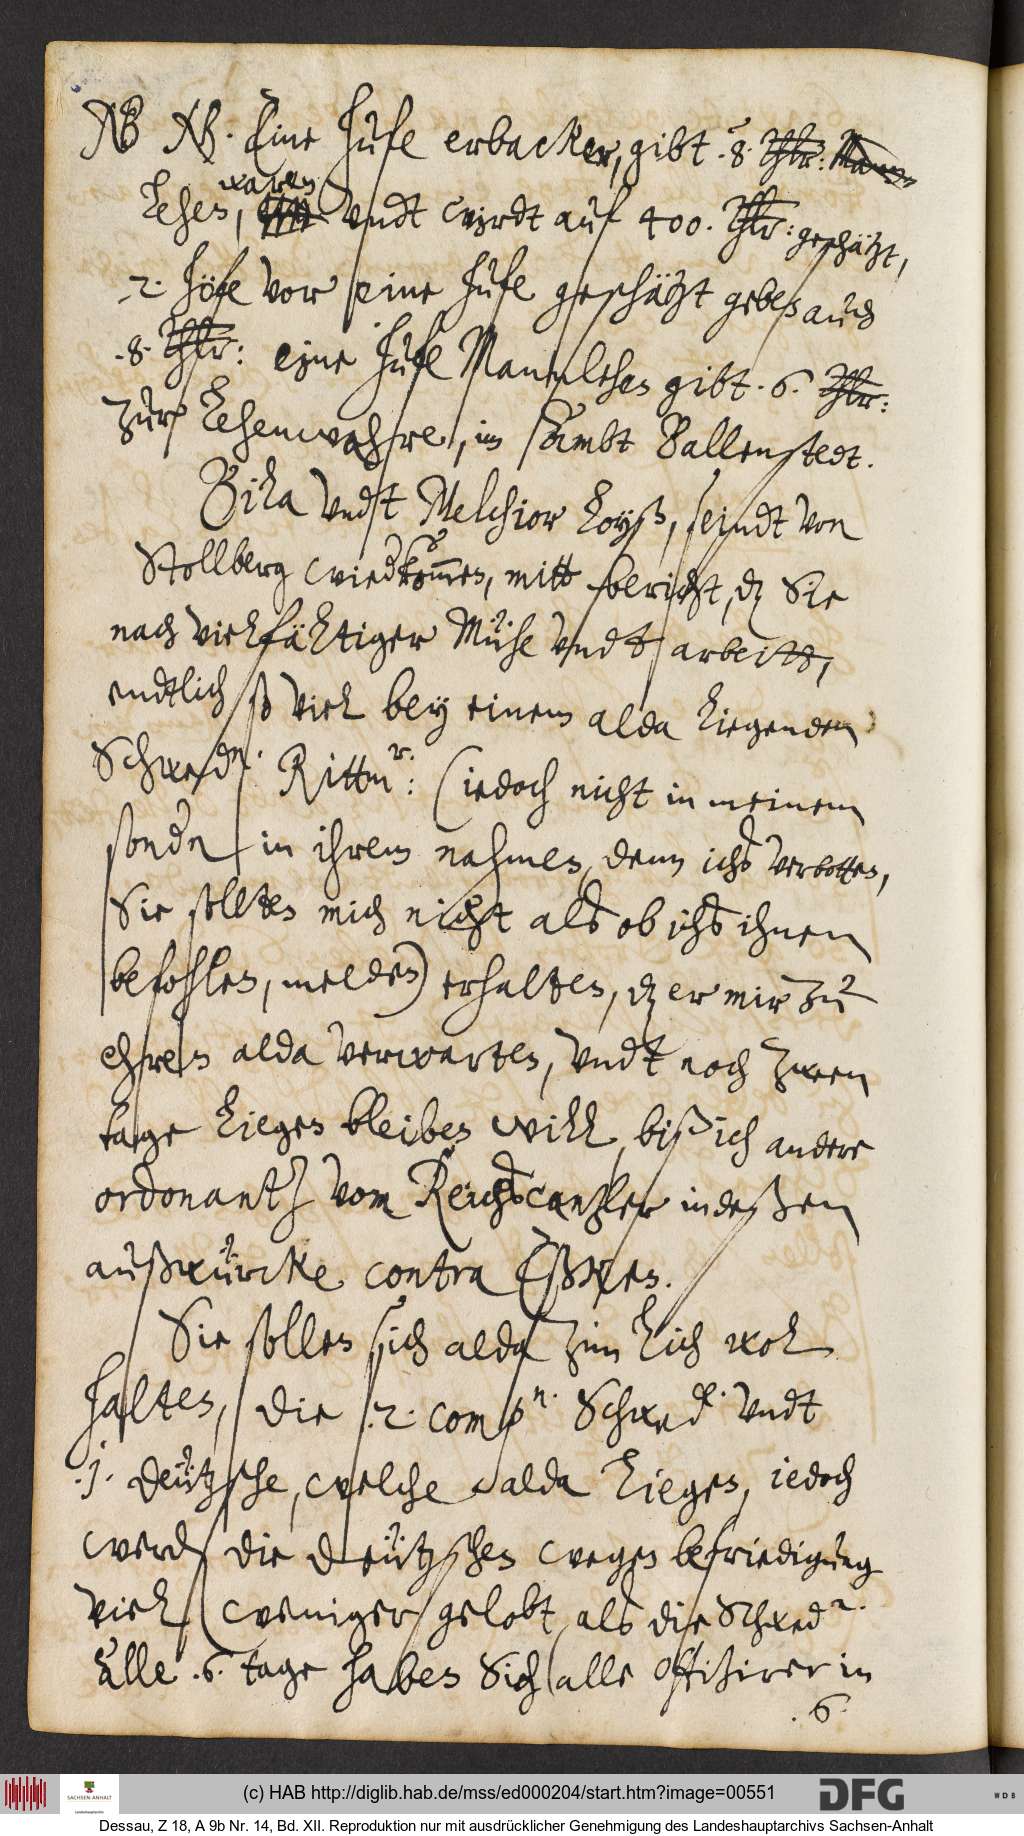 NB NB. Eine hufe erbacker, gibt .8. Thlr:
Lehen, waren vndt wirdt auf 400. Thlr: geschätzt,
.2. höfe vor eine hufe geschätzt geben auch
.8. Thlr: eine hufe Mannlehen gibt .6. Thlr:
zur Lehenwahre, im Ambt Ballenstedt.
vndt Melchior Loyß, seindt von
Stollberg wiedkommen, mitt bericht, dz Sie
nach vielfältiger Mühe vndt arbeitt,
endtlich so viel bey einem alda liegenden
Schwedn. Rittmr.: (iedoch nicht in meinem
sondn in ihrem nahmen, denn ichs verbotten,
Sie sollten mich nicht als ob ichs ihnen
befohlen, melden) erhalten, dz er mir zu
ehren alda verwarten, vndt noch zween
tage liegen bleiben will, biß ich andere
ordonantz vom Reichscantzler indeßen
außwürcke contra Eßken.
Sie sollen sich alda zimlich wol
halten, die .2. compn. Schwed. vndt
.1. deützsche, welche alda liegen, iedoch
werdn die deützschen wegen befriedigung
viel weniger gelobt als die Schwedn.
Alle .6. tage haben Sich alle offizirer in
.6.
(c) HAB http://diglib.hab.de/mss/ed000204/start.htm?image=00551
SACHSEN-ANHALT
DFG
WDB
Dessau, Z 18, A 9b Nr. 14, Bd. XII. Reproduktion nur mit ausdrücklicher Genehmigung des Landeshauptarchivs Sachsen-Anhalt